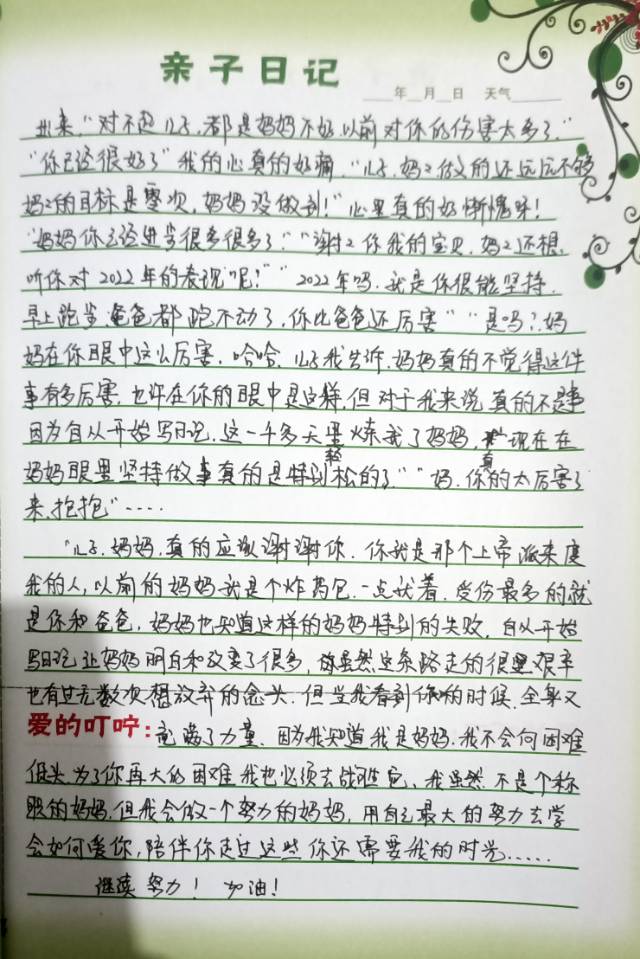 亲子日记
年 月 日 天气
出来，“对不起儿子，都是妈妈不好，以前对你的伤害太多了。”
“你已经很好了”我的心真的好痛，“儿子，妈妈做的还远远不够
妈妈的目标是零次，妈妈没做到！”心里真的好惭愧呀！
“妈妈你已经进步很多很多了”“谢谢你我的宝贝，妈妈还想
听你对2022年的表现呢？”“2022年吗，我是你很能坚持，
早上跑步，爸爸都跑不动了，你比爸爸还厉害”“是吗？，妈
妈在你眼中这么厉害，哈哈，儿子我告诉，妈妈真的不觉得这件
事有多厉害，也许在你的眼中是这样，但对于我来说真的不是事
因为自从开始写日记，这一千多天里炼我了妈妈，现在在
妈妈眼里坚持做事真的是特别轻松的了”“妈，你真的太厉害了
来，抱抱”……
“儿子，妈妈，真的应该谢谢你，你就是那个上帝派来度
我的人，以前的妈妈就是个炸药包，一点就着，受伤最多的就
是你和爸爸，妈妈也知道这样的妈妈特别的失败，自从开始
写日记让妈妈明白和改变了很多，虽然这条路走的很艰辛
也有过无数次想放弃的念头，但当我看到你的时候，全身又
爱的叮咛：充满了力量，因为我知道我是妈妈，我不会向困难
低头，为了你再大的困难我也必须去战胜它，我虽然不是个称
职的妈妈，但我会做一个努力的妈妈，用自己最大的努力去学
会如何爱你，陪伴你走过这些你还需要我的时光……
继续努力！加油！